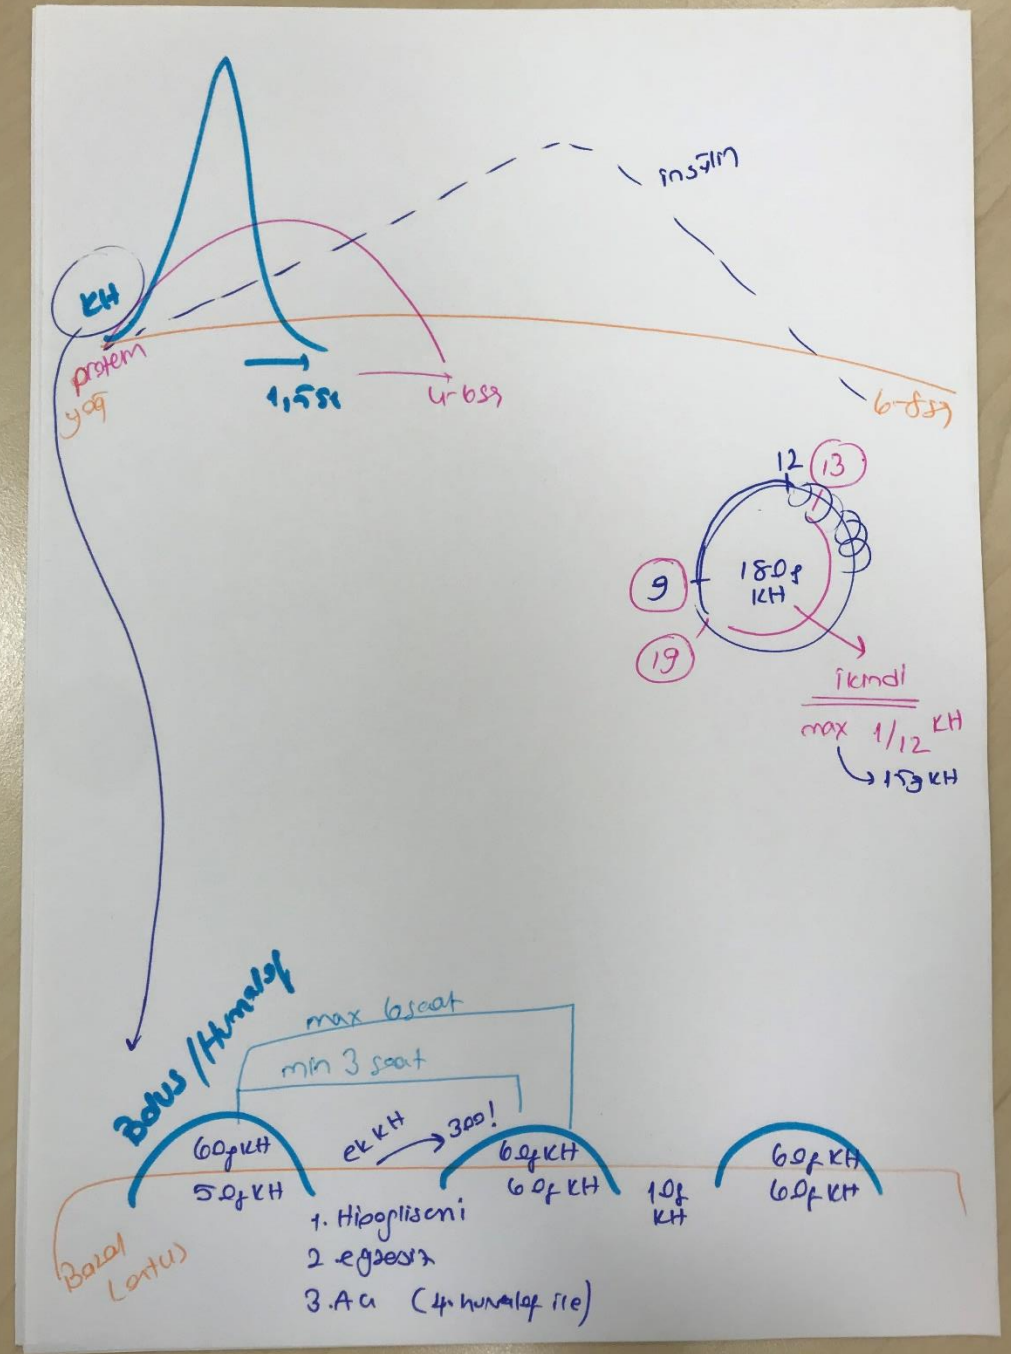 insülin
KH
protein
yağ
1,5sa
4-6sa
6-8sa
12 13
9
180g
KH
19
ikindi
max 1/12 KH
15g KH
Bolus/Humalog
max 6 saat
min 3 saat
ek KH
300!
60g KH
50g KH
60g KH
60g KH
10g
KH
60g KH
60g KH
Bazal
Lantus
1. Hipoglisemi
2 egzersiz
3. Ac (4. humalog ile)